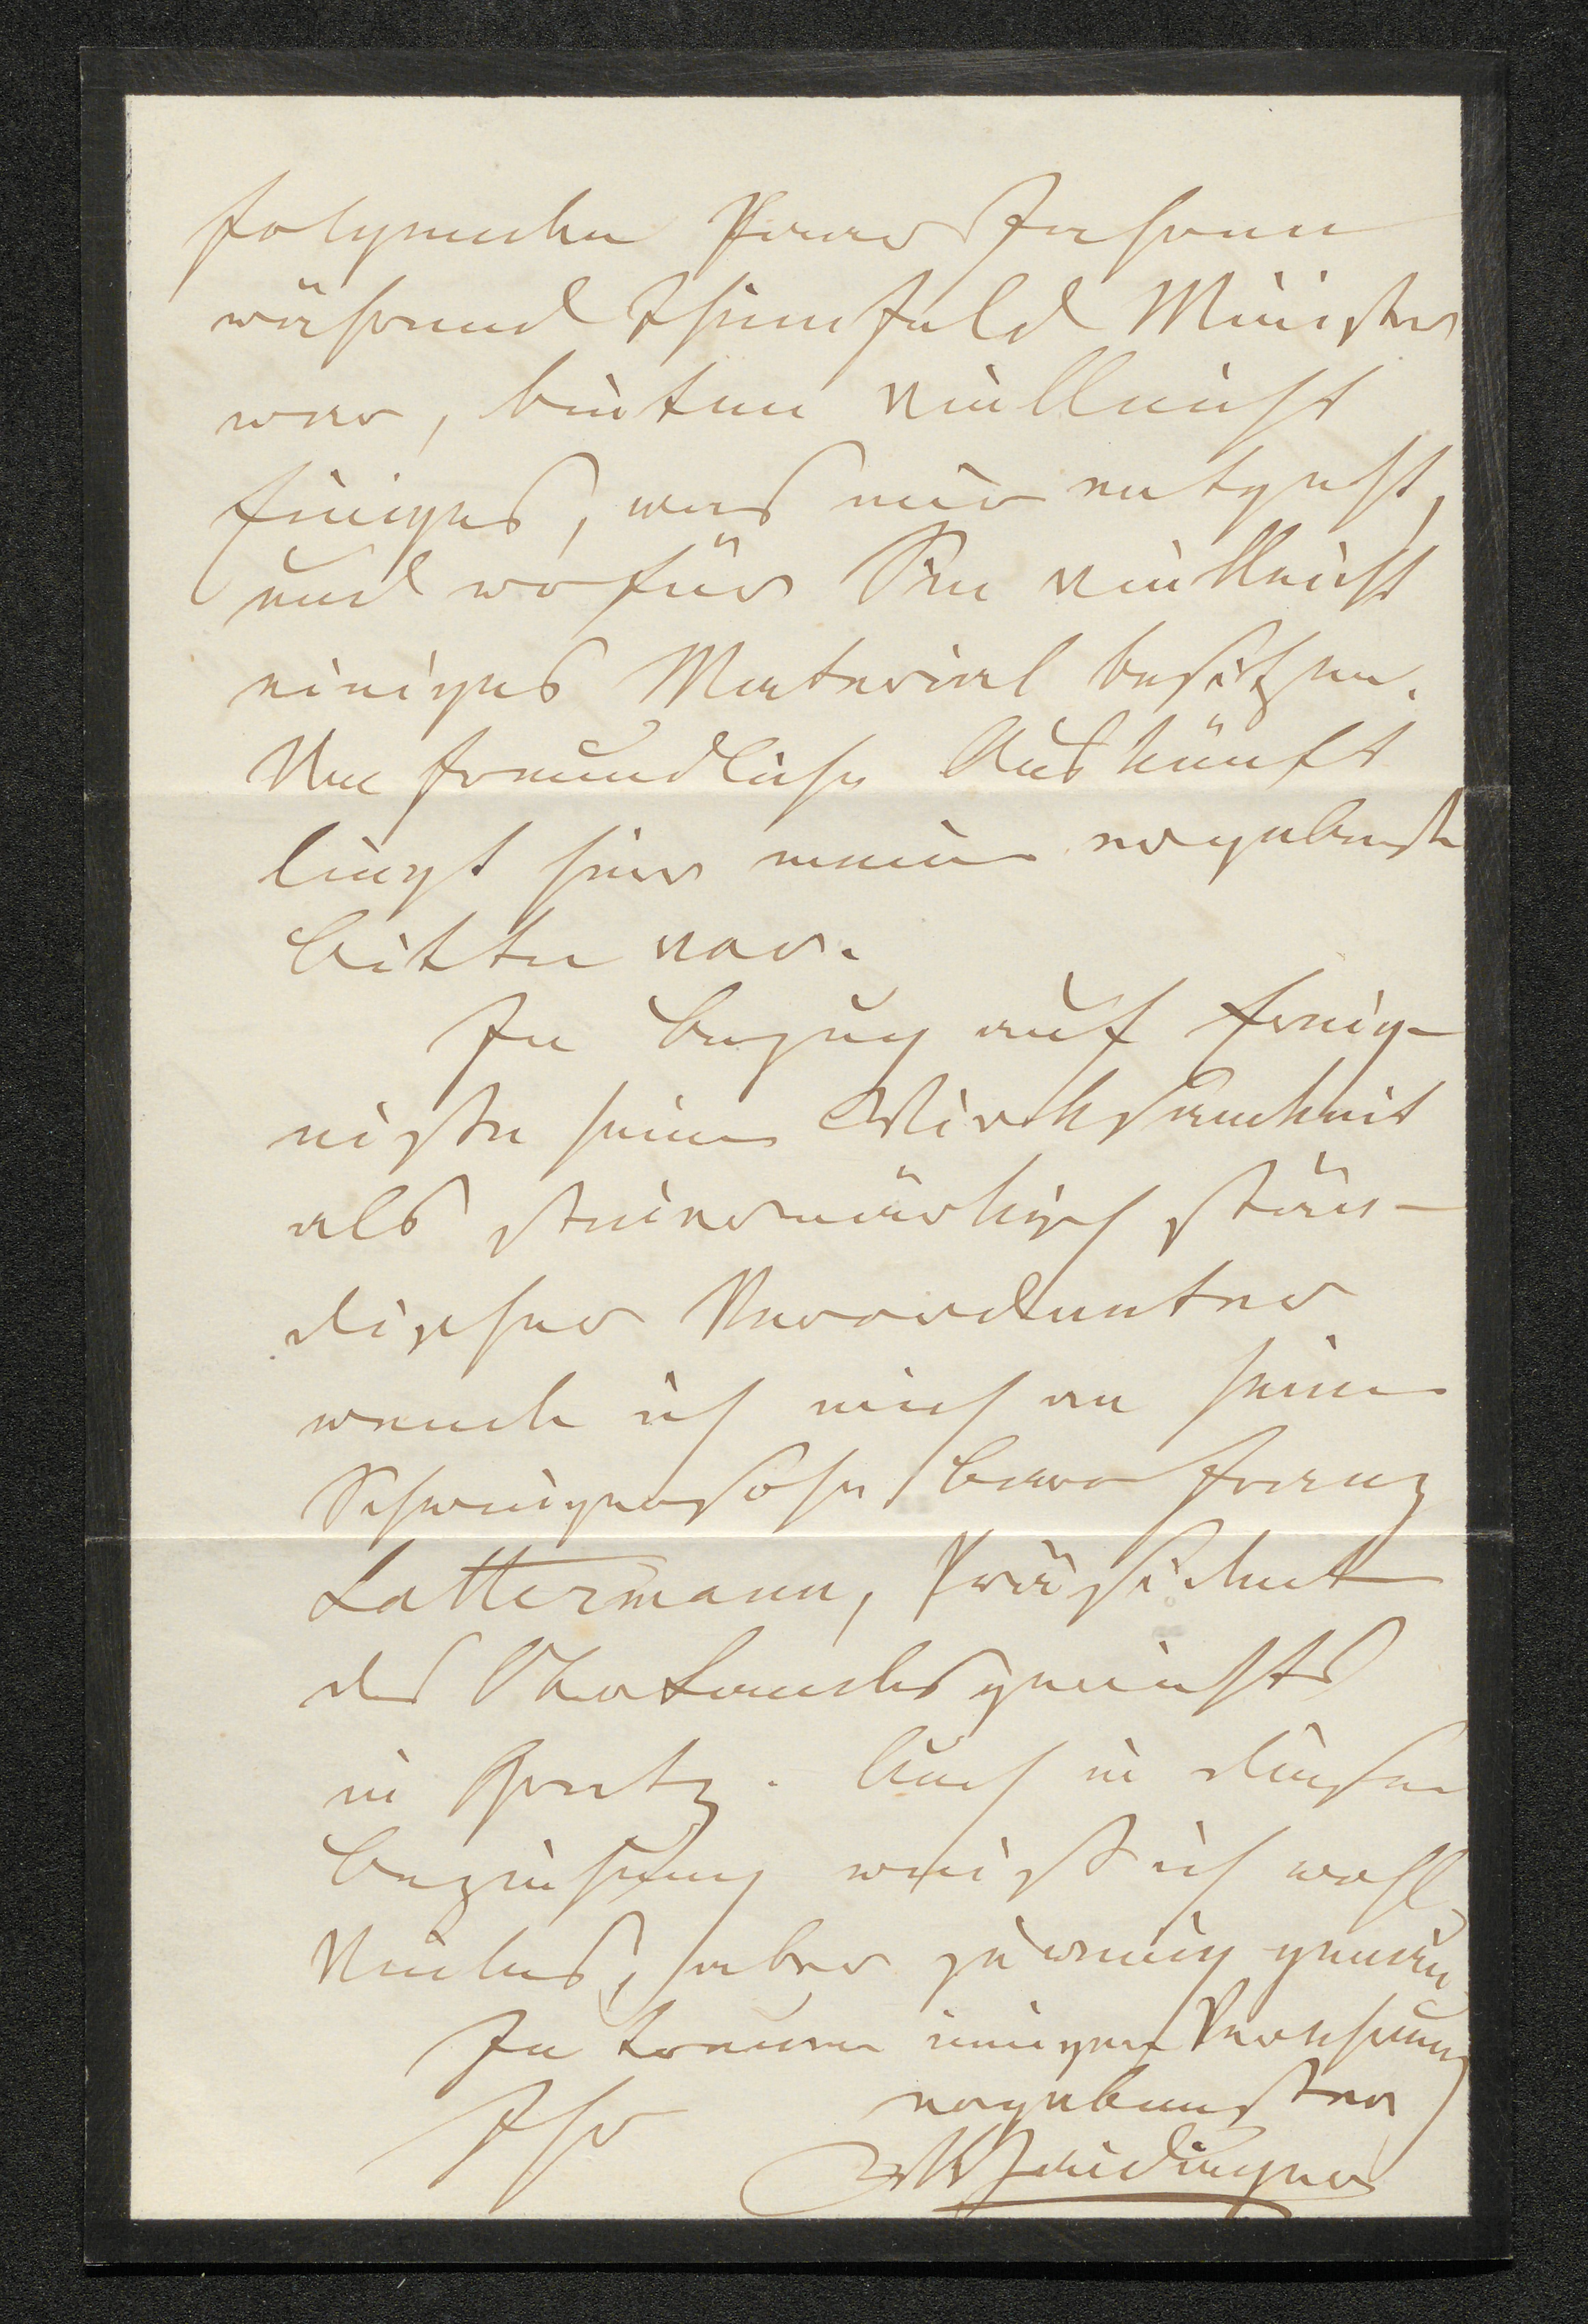 folgenden Paar Jahren
während Thinnfeld Minister
war, bieten vielleicht
Einiges, was mir entgeht,
und wofür Sie vielleicht
einiges Material besitzen.
Um freundliche Auskunft
liegt hier meine ergebenste
Bitte vor.
In Bezug auf Ereig-
nisse seiner Wirksamkeit
als steiermärkisch stän-
discher Verordneter
wende ich mich an seinen
Schwiegersohn Baron Franz
Lattermann, Präsident
des Oberlandesgerichts
in Gratz. Auch in dieser
Beziehung weiß ich wohl
Vieles, aber zu wenig genau.
In treuer inniger Verehrung
Ihr ergebenster
W Haidinger